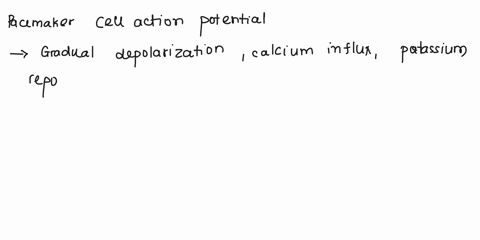 Pacemaker cell action potential
→ Gradual depolarization , calcium influx, potassium
repo